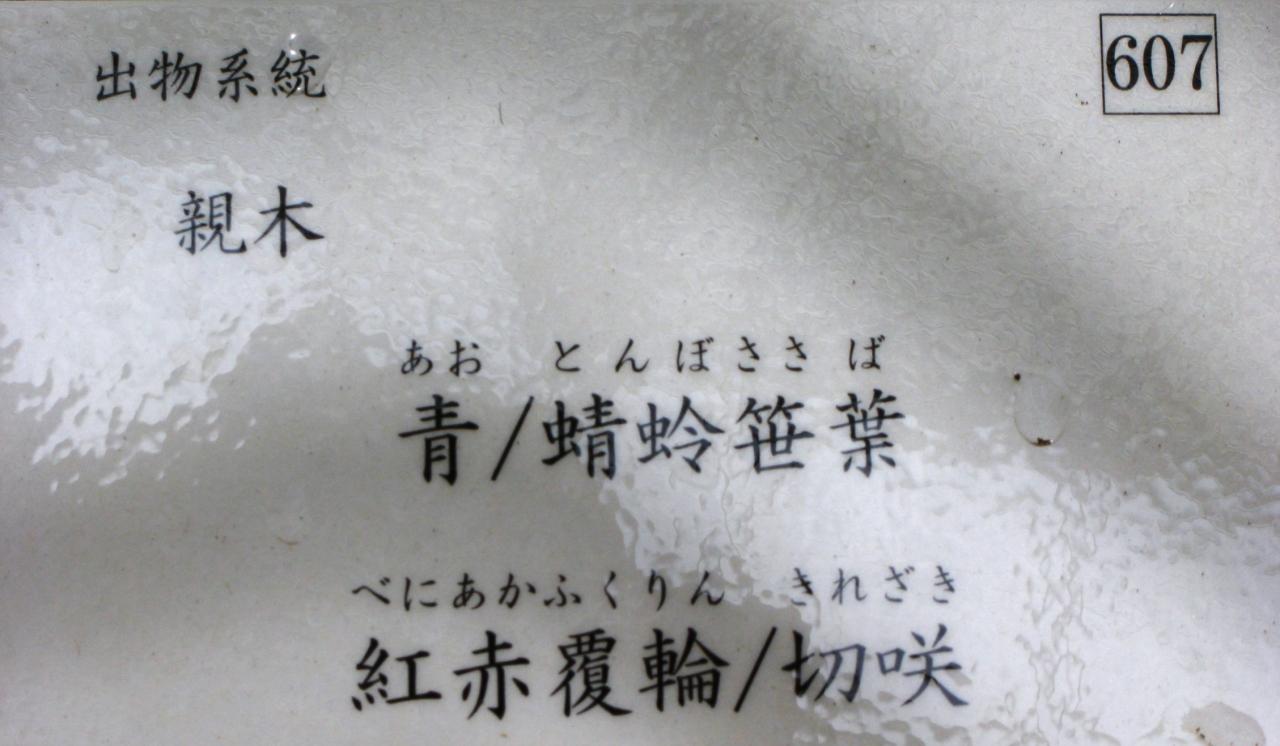 607
出物系統
親木
あお とんぼささ ば
青/蜻蛉笹葉
べにあかふくりん きれざき
紅赤覆輪/切咲